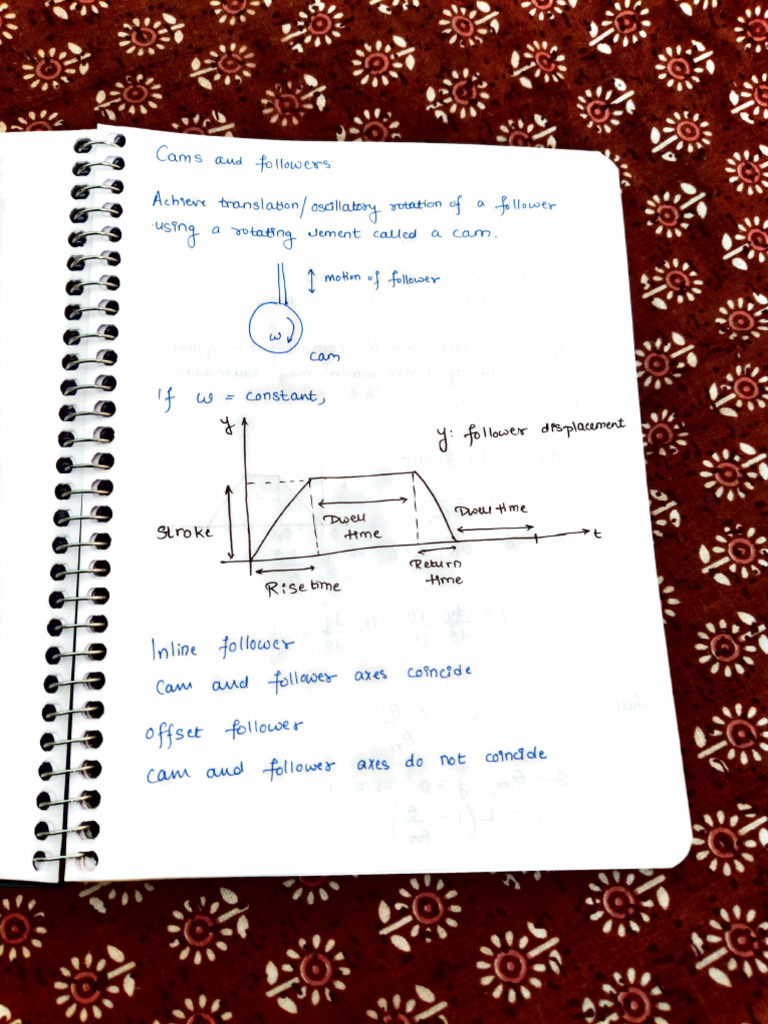 Cams and followers
Achieve translation/oscillatory rotation of a follower
using a rotating element called a cam.
motion of follower
ω
cam
If ω = constant,
y
y: follower displacement
Stroke
Dwell
time
Dwell time
t
Rise time
Return
time
Inline follower
Cam and follower axes coincide
Offset follower
cam and follower axes do not coincide